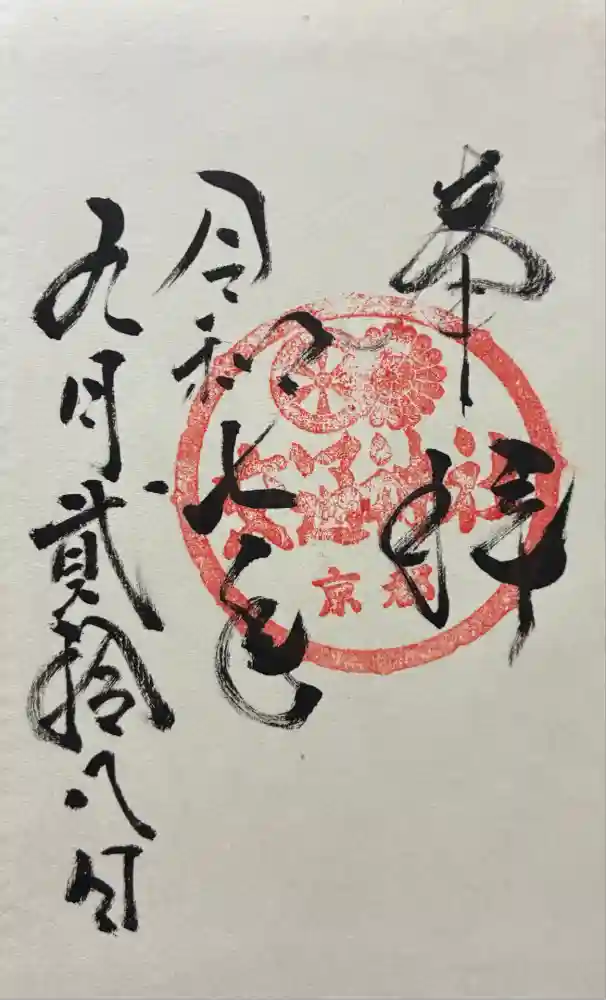 奉拝
令和七年
九月貳拾八日
神社
京都